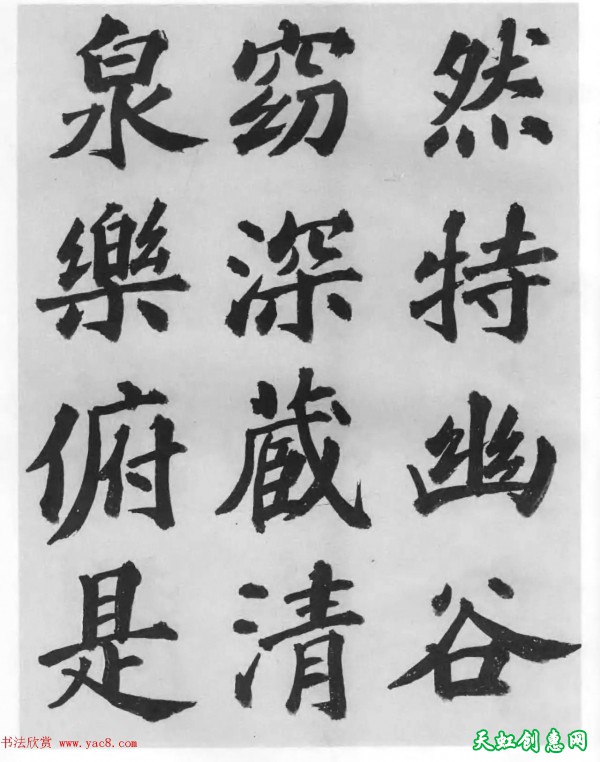 然特幽谷
窈深藏清
泉樂俯是
书法欣赏 www.yac8.com
天虹创惠网